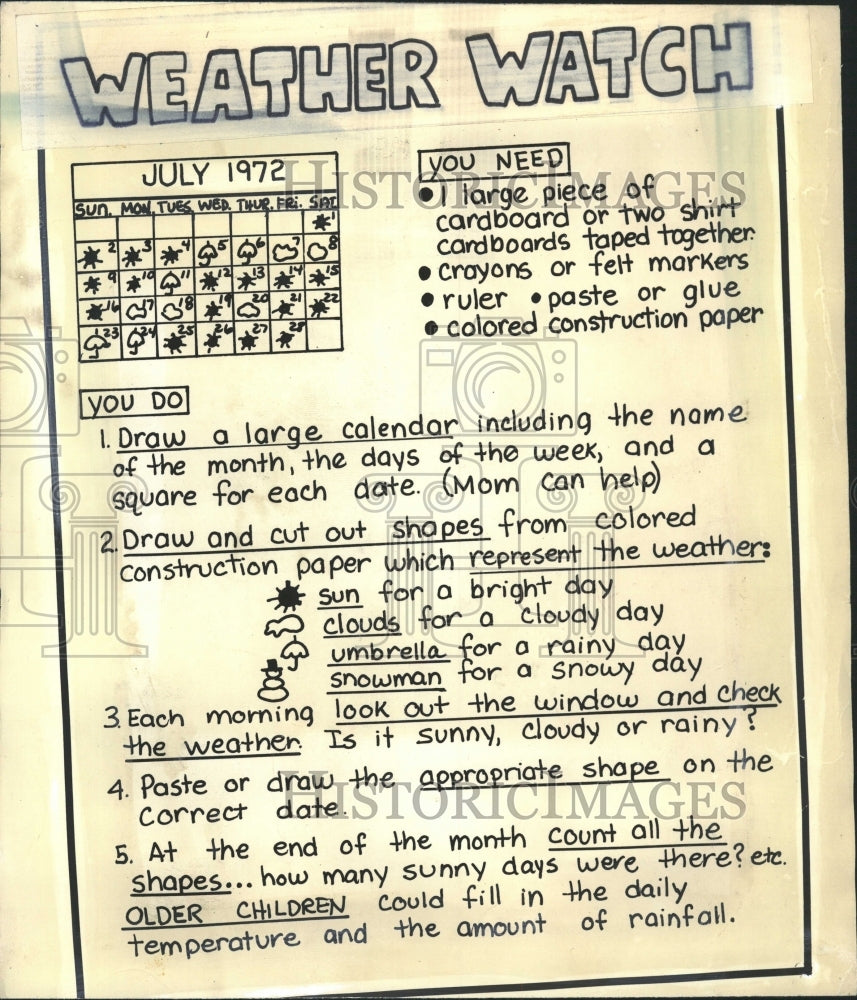 WEATHER WATCH
JULY 1972
SUN. MON. TUES. WED. THUR. FRI. SAT.
1
2 3 4 5 6 7 8
9 10 11 12 13 14 15
16 17 18 19 20 21 22
23 24 25 26 27 28
YOU NEED
• 1 large piece of
cardboard or two shirt
cardboards taped together.
• crayons or felt markers
• ruler • paste or glue
• colored construction paper
YOU DO
1. Draw a large calendar including the name
of the month, the days of the week, and a
square for each date. (Mom can help)
2. Draw and cut out shapes from colored
construction paper which represent the weather:
sun for a bright day
clouds for a cloudy day
umbrella for a rainy day
snowman for a snowy day
3. Each morning look out the window and check
the weather. Is it sunny, cloudy or rainy?
4. Paste or draw the appropriate shape on the
correct date.
5. At the end of the month count all the
shapes... how many sunny days were there? etc.
OLDER CHILDREN could fill in the daily
temperature and the amount of rainfall.
HISTORICIMAGES
HISTORICIMAGES